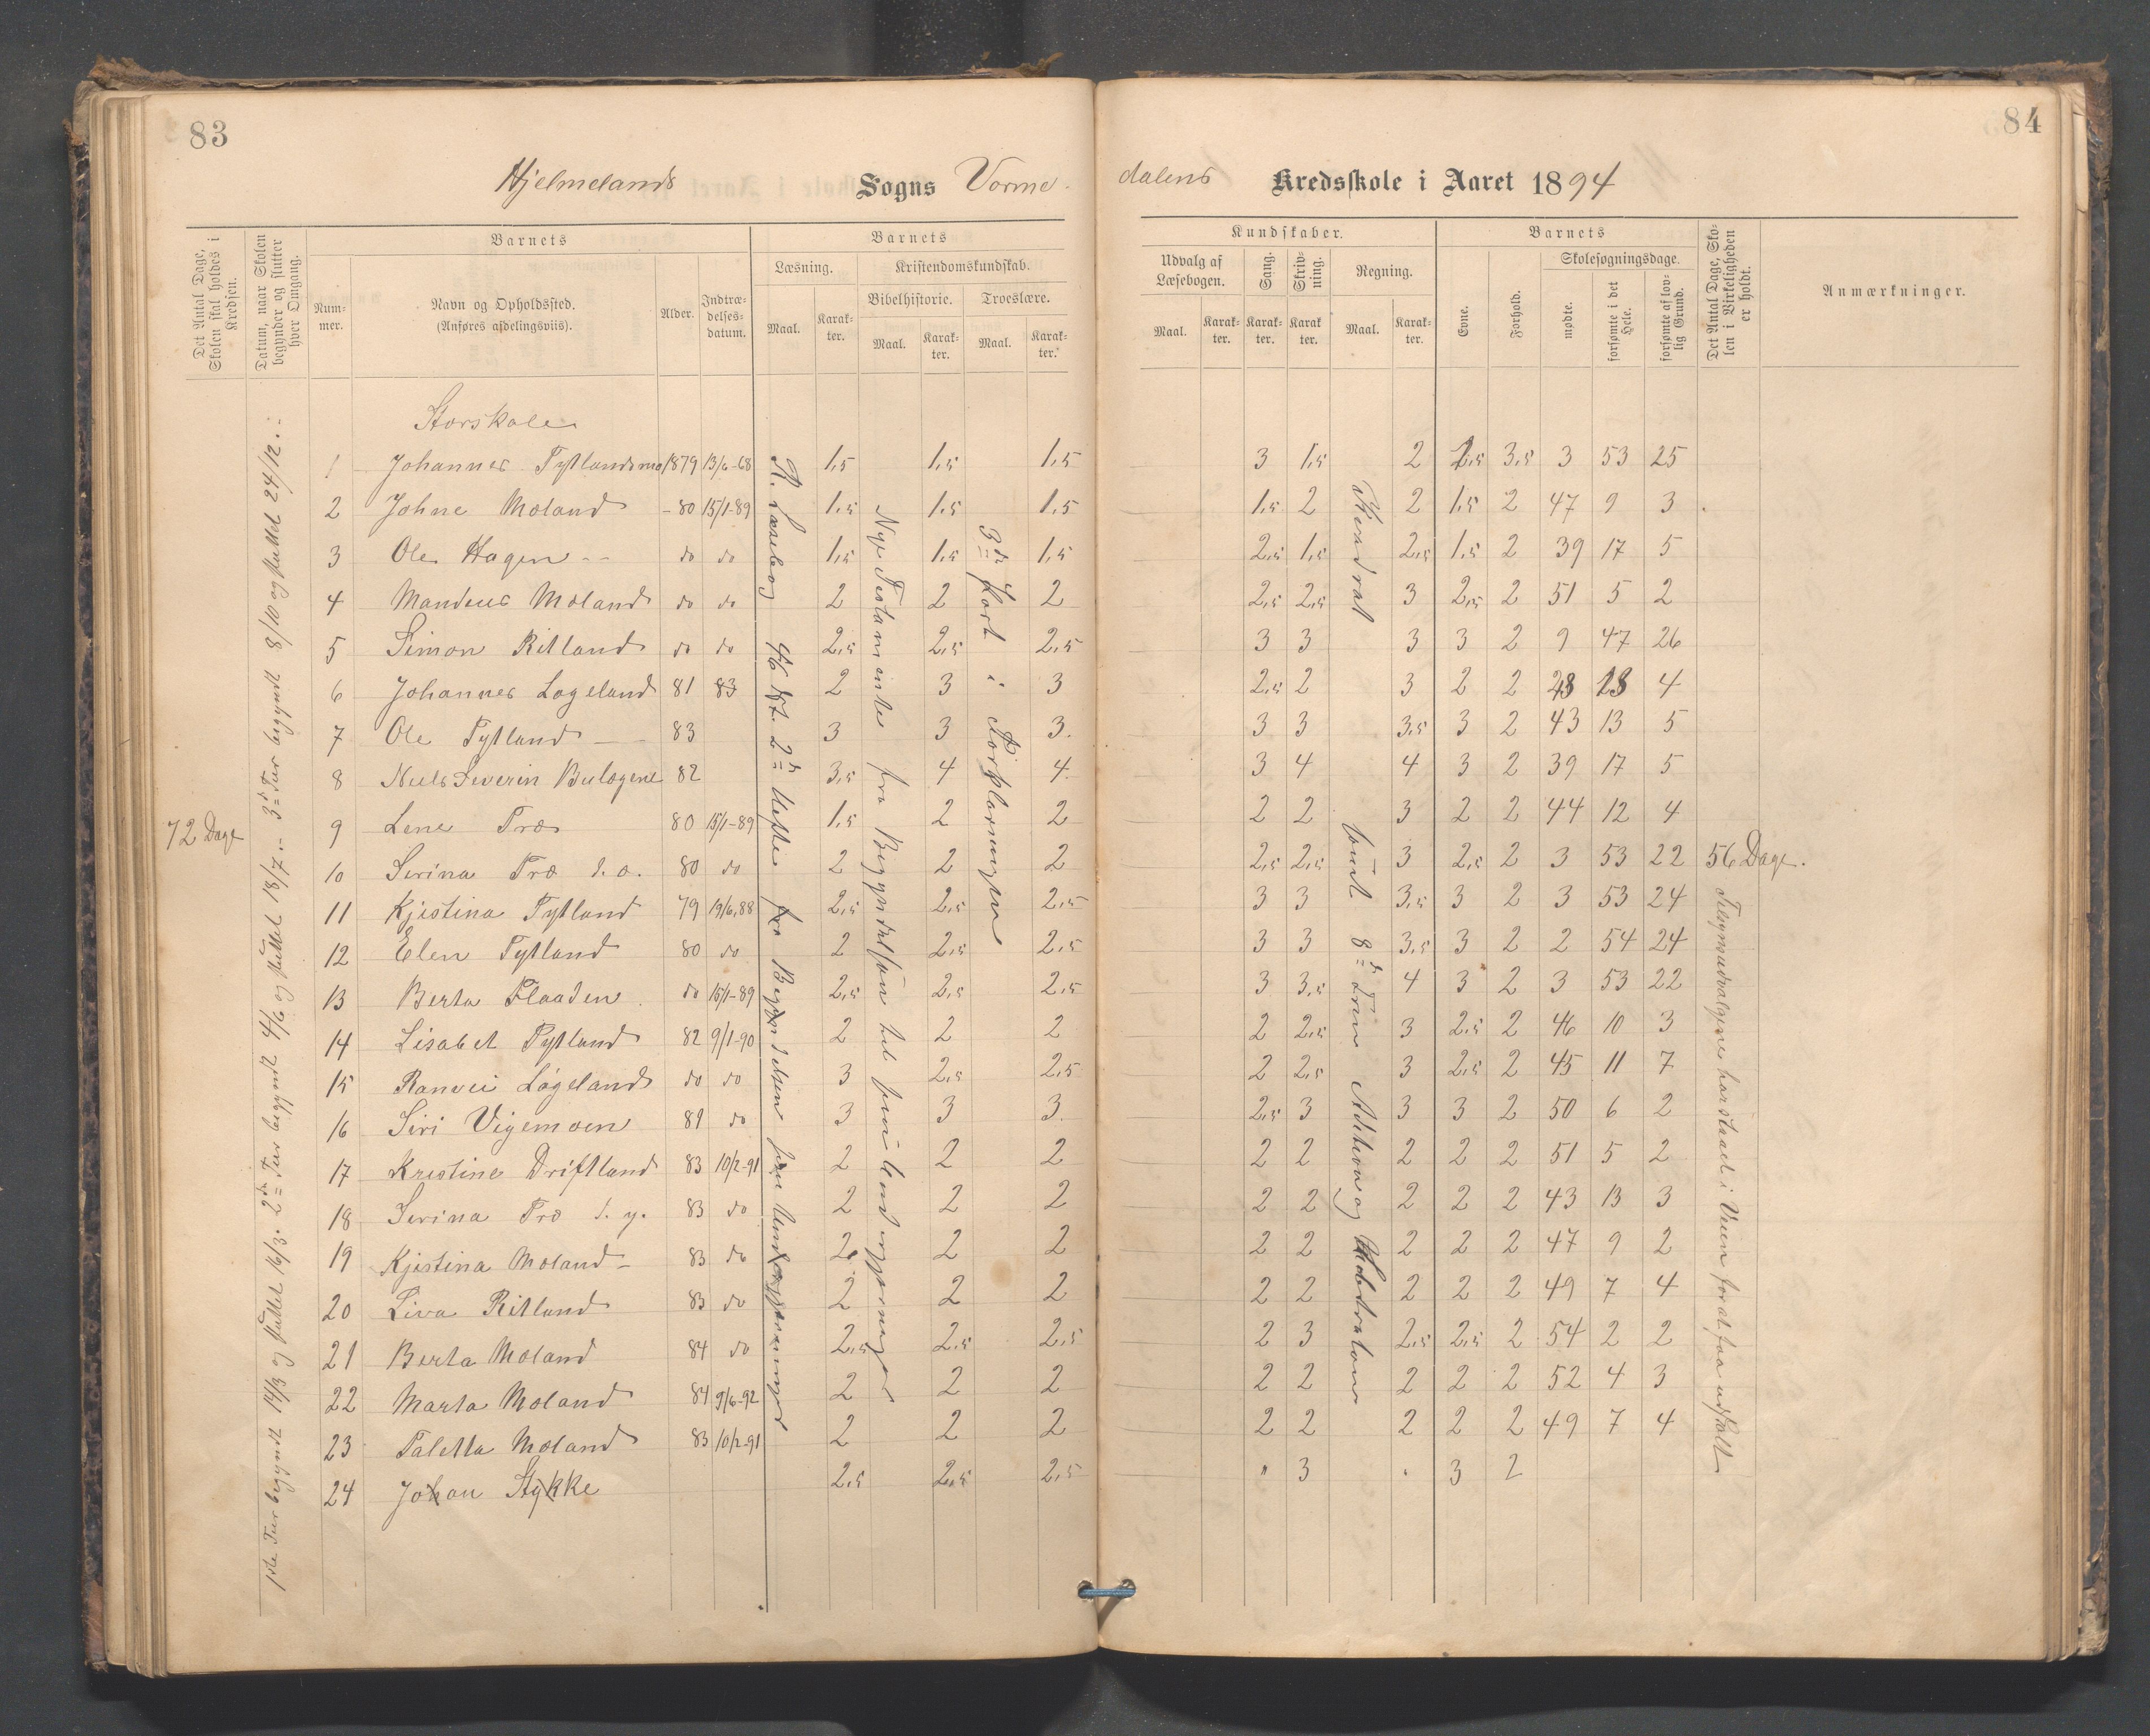 83
84
Hjelmelands Sogns Vorme-
dalens Kredsskole i Aaret 1894
Det Antal Dage, Skolen skal holdes i Kredsen.
Datum, naar Skolen begynder og slutter hver Omgang.
Barnets
Nummer.
Navn og Opholdssted.
(Anføres afdelingsviis).
Alder.
Indtrædelses-datum.
Barnets
Læsning.
Maal.
Karakter.
Kristendomskundskab.
Bibelhistorie.
Maal.
Karakter.
Troeslære.
Maal.
Karakter.
Kundskaber.
Udvalg af Læsebogen.
Maal.
Karakter.
Sang.
Karakter.
Skrivning.
Karakter.
Regning.
Maal.
Karakter.
Barnets
Evne.
Forhold.
Skolesøgningsdage.
mødte.
forsømte i det Hele.
forsømte af lovlig Grund.
Det Antal Dage, Skolen i Virkeligheden er holdt.
Anmærkninger.
Storskole
1 Johannes Tytlandsmo 1879 13/6-68 1,5 1,5 1,5 3 1,5 2 2,5 3,5 3 53 25
2 Johne Moland -80 15/1-89 1,5 1,5 1,5 1,5 2 2 1,5 2 47 9 3
3 Ole Hagen do do 1,5 1,5 1,5 2,5 1,5 2,5 1,5 2 39 17 5
4 Mandius Moland do do 2 2 2 2,5 2,5 3 2,5 2 51 5 2
5 Simon Ritland do do 2,5 2,5 2,5 3 3 3 3 2 9 47 26
6 Johannes Løgeland 81 83 2 3 3 2,5 2 3 2 2 28 28 4
7 Ole Tytland 83 3 3 3. 3 3 3,5 3 2 43 13 5
8 Niels Severin Bulægene 82 3,5 4 4. 3 4 4 3 2 39 17 5
72 Dage
9 Lene Træ 80 15/1-89 1,5 2 2 2 2 3 2 2 44 12 4
10 Serina Træ d. æ. 80 do 2 2 2 2,5 2,5 3 2,5 2 3 53 22 56 Dage.
11 Kjistina Tytland 79 19/6,88 2,5 2,5 2,5 3 3 3,5 3 2 3 53 24
12 Elen Tytland 80 do 2 2,5 2,5 3 3 3,5 3 2 2 54 24
13 Berta Flaaden do 15/1-89 2,5 2,5 2,5 3 3,5 4 3 2 3 53 22
14 Lisabet Tytland 82 9/1-90 2 2 2 2 2,5 3 2,5 2 46 10 3
15 Ranvei Løgeland do do 3 2,5 2,5 2 2,5 3 2,5 2 45 11 7
16 Siri Vigemoen 81 do 3 3 3. 2,5 3 3 3 2 50 6 2
17 Kristine Driftland 83 10/2-91 2 2 2 2 2 2 2 2 51 5 2
18 Serina Træ d. y. 83 do 2 2 2 2 2 2 2 2 43 13 3
19 Kjistina Moland 83 do 2 2 2 2 2 2 2 2 47 9 2
20 Liva Ritland 83 do 2 2 2 2 2 2 2 2 49 7 4
21 Berta Moland 84 do 2,5 2,5 2,5 2 3 2,5 2,5 2 54 2 2
22 Marta Moland 84 9/6-92 2 2 2 2 2 2 2 2 52 4 3
23 Taletta Moland 83 10/2-91 2 2 2 2 2 2 2 2 49 7 4
24 Johan Stykke 2,5 2,5 2,5 " 3 3 2
1ste Tur begyndt 14/3 og sluttet 16/3. 2den Tur begyndt 4/6 og sluttet 18/7. - 3de Tur begyndt 8/10 og sluttet 24/12. -
R. Læsebog 2de Hefte fra Begyndelsen
Nye Testamente fra Begyndelsen til
3die Part i Forklaringen
8de Trin Addition og
Tilsynsudvalgene har